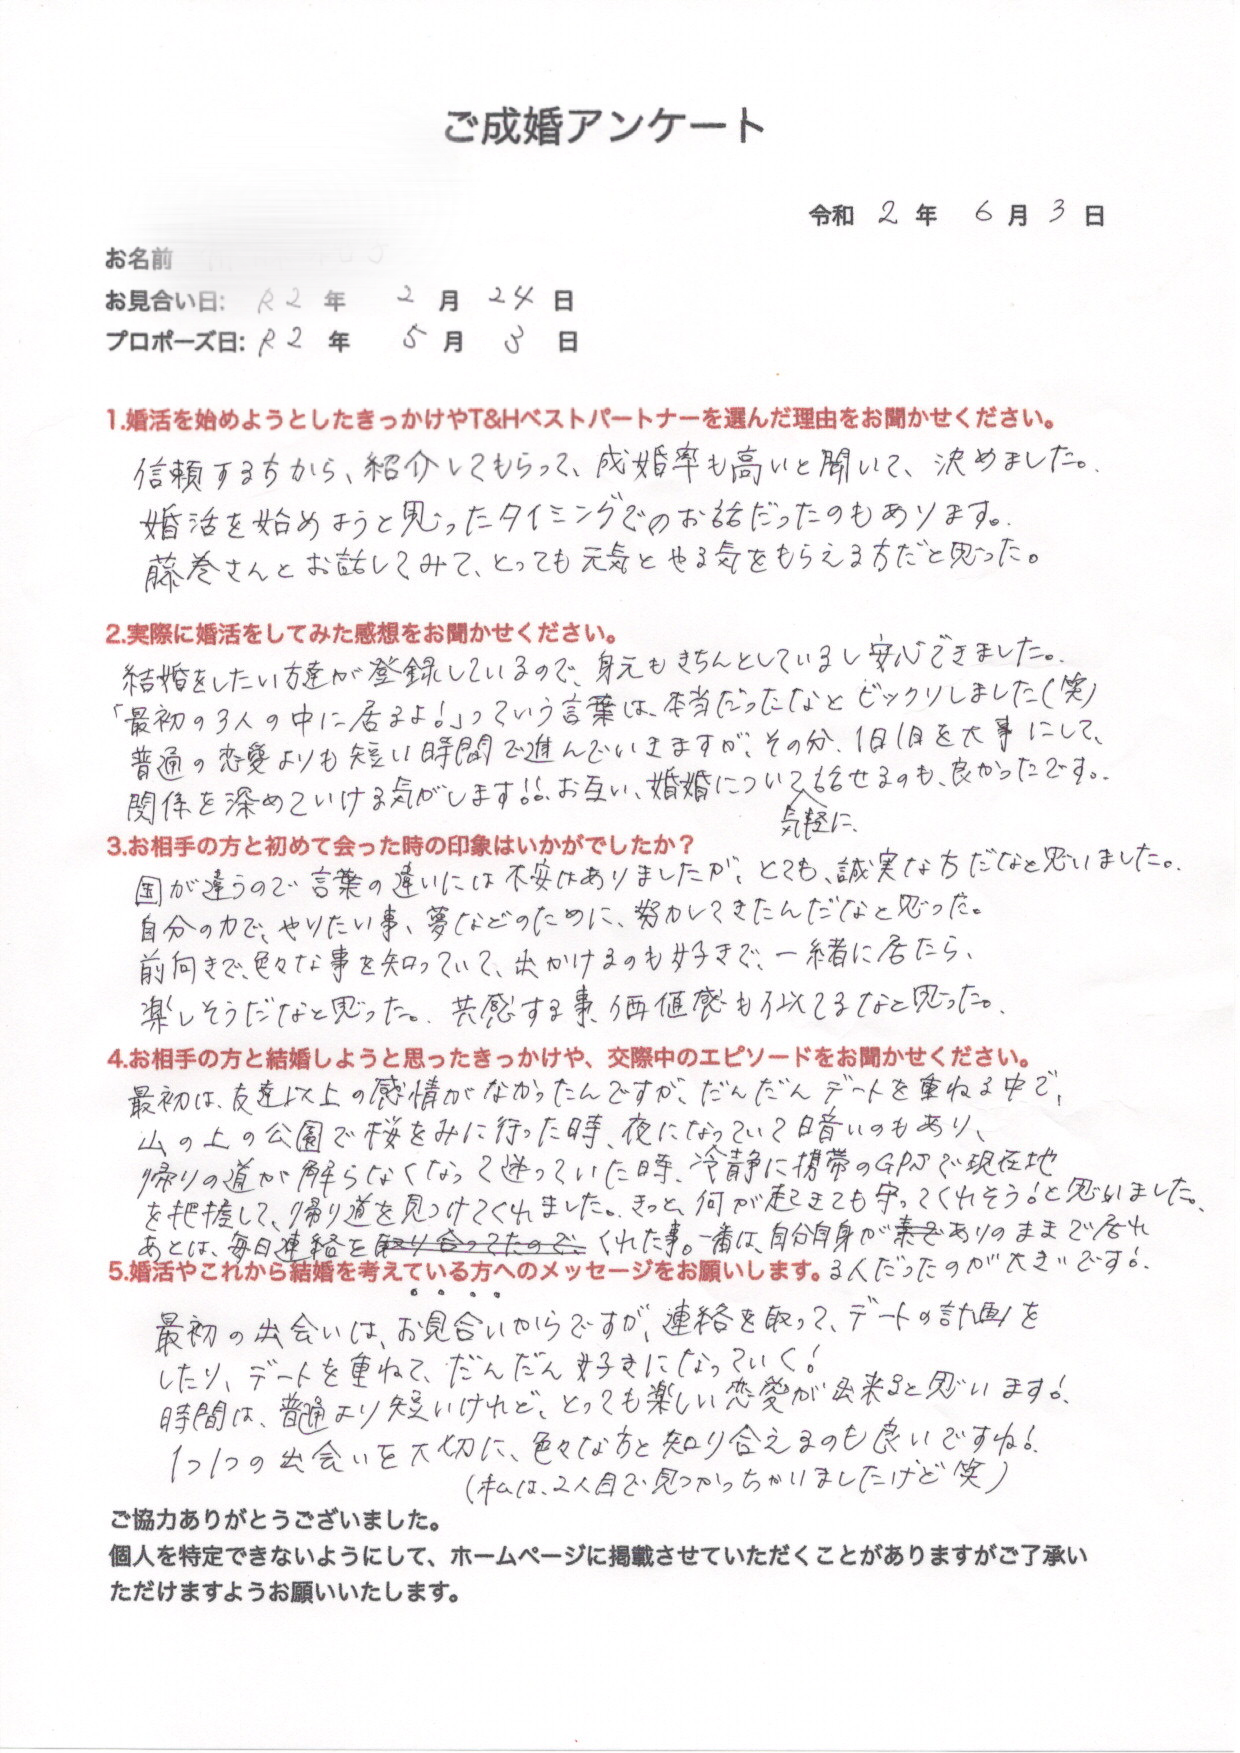 ご成婚アンケート
令和 2 年 6 月 3 日
お名前
お見合い日: R2 年 2 月 24 日
プロポーズ日: R2 年 5 月 3 日
1.婚活を始めようとしたきっかけやT&Hベストパートナーを選んだ理由をお聞かせください。
信頼する方から、紹介してもらって、成婚率も高いと聞いて、決めました。
婚活を始めようと思ったタイミングでのお話だったのもあります。
藤巻さんとお話してみて、とっても元気とやる気をもらえる方だと思った。
2.実際に婚活をしてみた感想をお聞かせください。
結婚をしたい方達が登録しているので、身元もきちんとしているし安心できました。
「最初の3人の中に居るよ!」っていう言葉は、本当だったなとビックリしました(笑)
普通の恋愛よりも短い時間で進んでいきますが、その分、1日1日を大事にして、
関係を深めていける気がします!!お互い、婚婚について気軽に、話せるのも、良かったです。
3.お相手の方と初めて会った時の印象はいかがでしたか?
国が違うので言葉の違いには不安はありましたが、とても、誠実な方だなと思いました。
自分の力で、やりたい事、夢などのために、努力してきたんだなと思った。
前向きで、色々な事を知っていて、出かけるのも好きで、一緒に居たら、
楽しそうだなと思った。共感する事、価値感も似てるなと思った。
4.お相手の方と結婚しようと思ったきっかけや、交際中のエピソードをお聞かせください。
最初は、友達以上の感情がなかったんですが、だんだんデートを重ねる中で、
山の上の公園で桜をみに行った時、夜になっていて暗いのもあり、
帰りの道が解らなくなって迷っていた時、冷静に携帯のGPSで現在地
を把握して、帰り道を見つけてくれました。きっと、何が起きても守ってくれそう!と思いました。
あとは、毎日連絡を取り合ってたので、くれた事。一番は、自分自身が素でありのままで居れ
る人だったのが大きいです!
5.婚活やこれから結婚を考えている方へのメッセージをお願いします。
最初の出会いは、お見合いからですが、連絡を取って、デートの計画を
したり、デートを重ねて、だんだん好きになっていく!
時間は、普通より短いけれど、とっても楽しい恋愛が出来ると思います!
1つ1つの出会いを大切に、色々な方と知り合えるのも良いですね!
(私は、2人目で見つかっちゃいましたけど笑)
ご協力ありがとうございました。
個人を特定できないようにして、ホームページに掲載させていただくことがありますがご了承い
ただけますようお願いいたします。